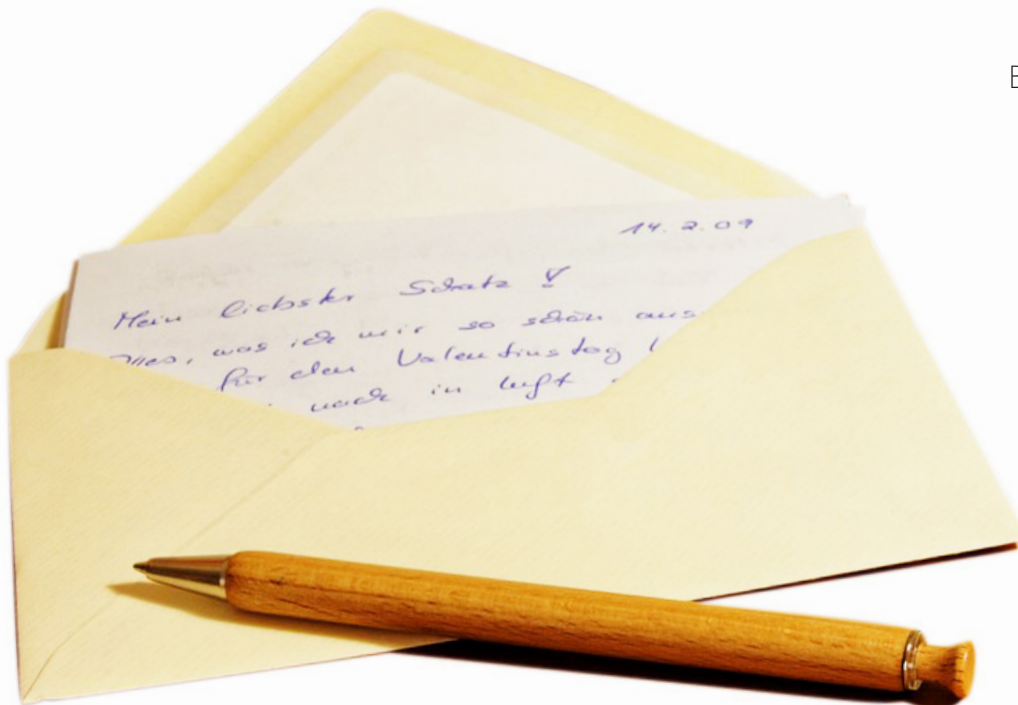 14.2.09
Mein liebster Schatz!
was ich mir so schön aus
für den Valentinstag
nach in Luft